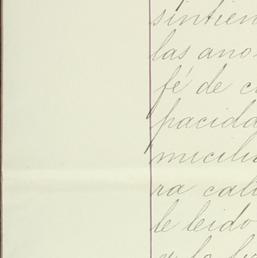 sintien
las ano
fé de c
pacida
micili
ra cali
le leido
y la fi